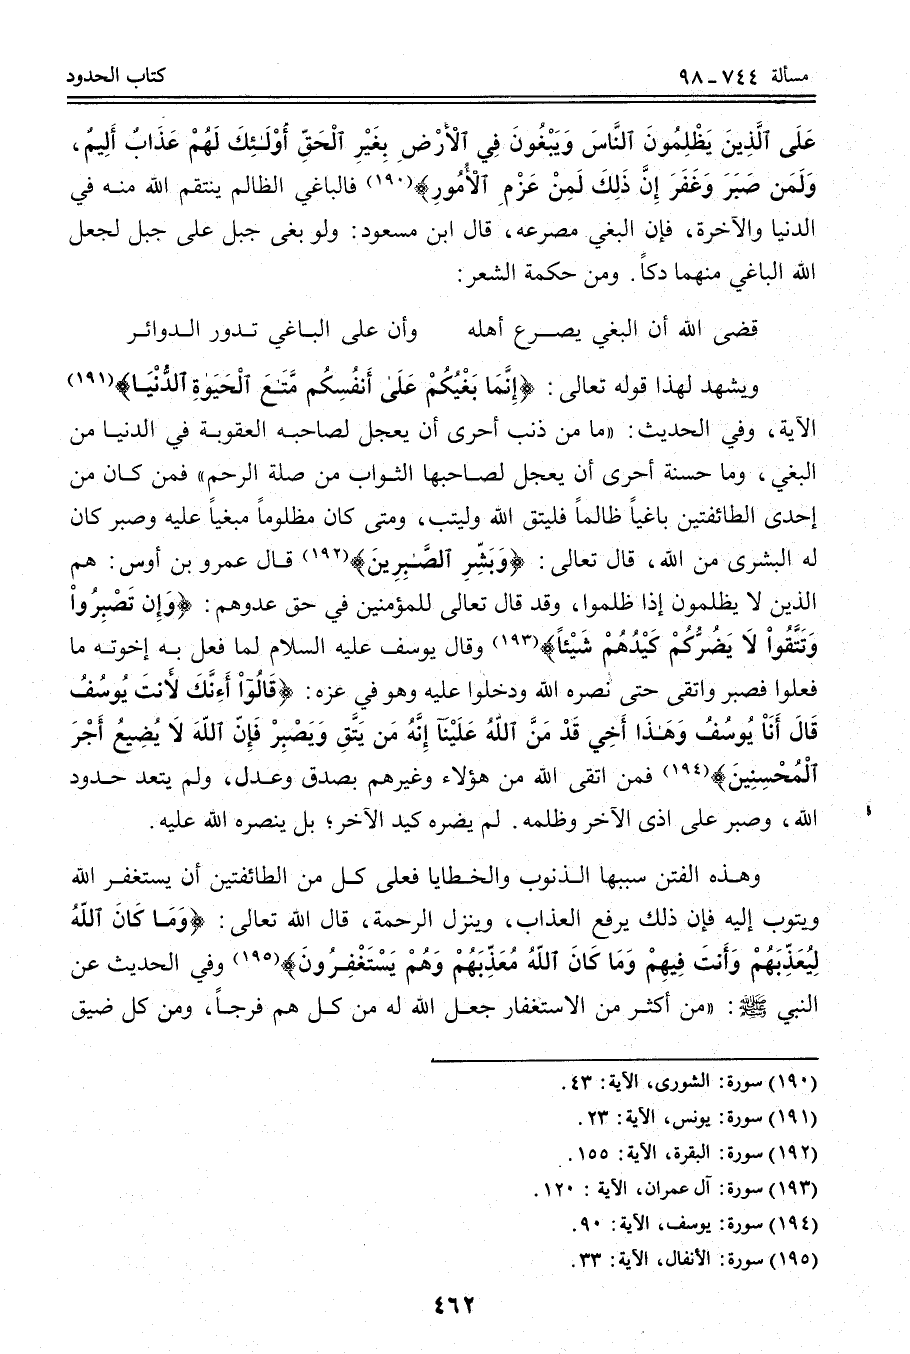 مسألة ٧٤٤ - ٩٨
كتاب الحدود
عَلَى ٱلَّذِينَ يَظْلِمُونَ ٱلنَّاسَ وَيَبْغُونَ فِي ٱلْأَرْضِ بِغَيْرِ ٱلْحَقِّ أُوْلَـٰئِكَ لَهُمْ عَذَابٌ أَلِيمٌ،
وَلَمَن صَبَرَ وَغَفَرَ إِنَّ ذَلِكَ لَمِنْ عَزْمِ ٱلْأُمُورِ﴾(١٩٠) فالباغي الظالم ينتقم الله منه في
الدنيا والآخرة، فإن البغي مصرعه، قال ابن مسعود: ولو بغى جبل على جبل لجعل
الله الباغي منهما دكاً. ومن حكمة الشعر:
قضى الله أن البغي يصرع أهله وأن على الباغي تدور الدوائر
ويشهد لهذا قوله تعالى: ﴿إِنَّمَا بَغْيُكُمْ عَلَىٰ أَنفُسِكُم مَّتَـٰعَ ٱلْحَيَوٰةِ ٱلدُّنْيَا﴾(١٩١)
الآية، وفي الحديث: «ما من ذنب أحرى أن يعجل لصاحبه العقوبة في الدنيا من
البغي، وما حسنة أحرى أن يعجل لصاحبها الثواب من صلة الرحم» فمن كان من
إحدى الطائفتين باغياً ظالماً فليتق الله وليتب، ومتى كان مظلوماً مبغياً عليه وصبر كان
له البشرى من الله، قال تعالى: ﴿وَبَشِّرِ ٱلصَّـٰبِرِينَ﴾(١٩٢) قال عمرو بن أوس: هم
الذين لا يظلمون إذا ظلموا، وقد قال تعالى للمؤمنين في حق عدوهم: ﴿وَإِن تَصْبِرُواْ
وَتَتَّقُواْ لَا يَضُرُّكُمْ كَيْدُهُمْ شَيْئاً﴾(١٩٣) وقال يوسف عليه السلام لما فعل به إخوته ما
فعلوا فصبر واتقى حتى نصره الله ودخلوا عليه وهو في عزه: ﴿قَالُوٓاْ أَءِنَّكَ لَأَنتَ يُوسُفُ
قَالَ أَنَاْ يُوسُفُ وَهَـٰذَا أَخِي قَدْ مَنَّ ٱللَّهُ عَلَيْنَآ إِنَّهُ مَن يَتَّقِ وَيَصْبِرْ فَإِنَّ ٱللَّهَ لَا يُضِيعُ أَجْرَ
ٱلْمُحْسِنِينَ﴾(١٩٤) فمن اتقى الله من هؤلاء وغيرهم بصدق وعدل، ولم يتعد حدود
الله، وصبر على اذى الآخر وظلمه. لم يضره كيد الآخر؛ بل ينصره الله عليه.
وهذه الفتن سببها الذنوب والخطايا فعلى كل من الطائفتين أن يستغفر الله
ويتوب إليه فإن ذلك يرفع العذاب، وينزل الرحمة، قال الله تعالى: ﴿وَمَا كَانَ ٱللَّهُ
لِيُعَذِّبَهُمْ وَأَنتَ فِيهِمْ وَمَا كَانَ ٱللَّهُ مُعَذِّبَهُمْ وَهُمْ يَسْتَغْفِرُونَ﴾(١٩٥) وفي الحديث عن
النبي ﷺ: «من أكثر من الاستغفار جعل الله له من كل هم فرجاً، ومن كل ضيق
(١٩٠) سورة: الشورى، الآية: ٤٣.
(١٩١) سورة: يونس، الآية: ٢٣.
(١٩٢) سورة: البقرة، الآية: ١٥٥.
(١٩٣) سورة: آل عمران، الآية : ١٢٠.
(١٩٤) سورة: يوسف، الآية: ٩٠.
(١٩٥) سورة: الأنفال، الآية: ٣٣.
٤٦٢